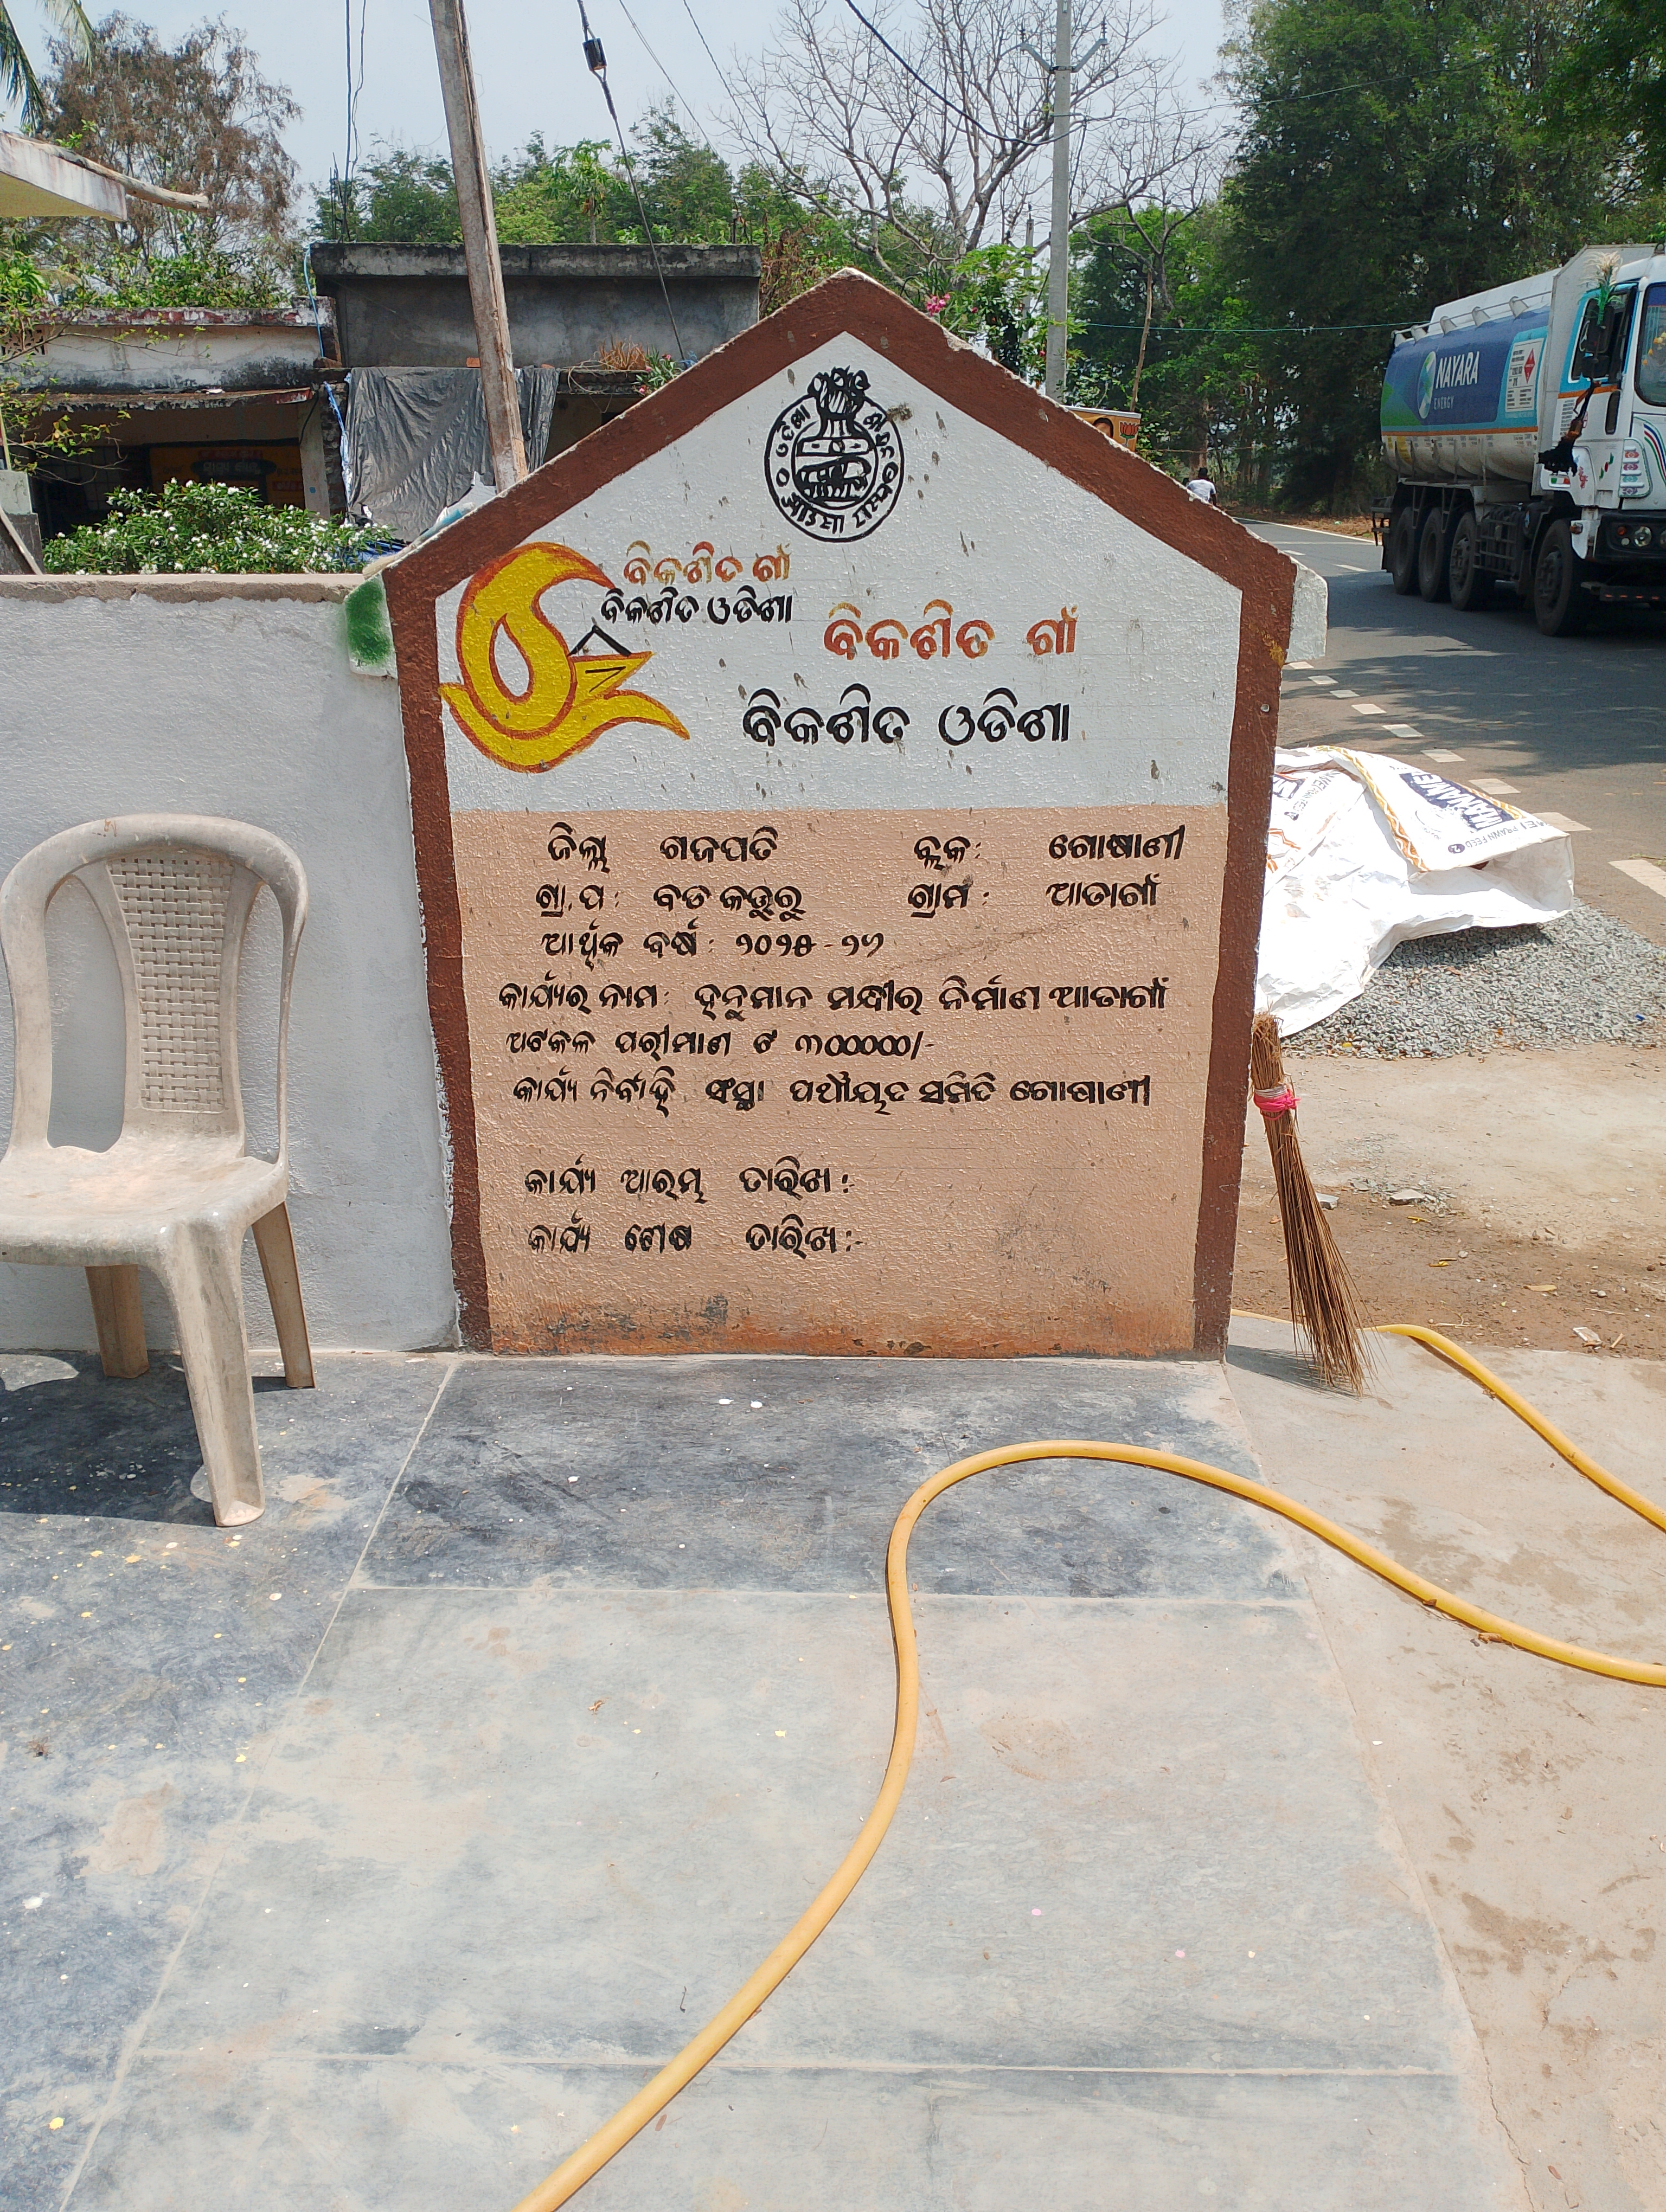 ବିକଶିତ ଗାଁ
ବିକଶିତ ଓଡିଶା
ବିକଶିତ ଗାଁ
ବିକଶିତ ଓଡିଶା
ଜିଲ୍ଲା ଗଜପତି ବ୍ଲକ: ଗୋଷାଣୀ
ଗ୍ରା.ପ: ବଡ କତ୍ତୁରୁ ଗ୍ରାମ: ଆଡାଗାଁ
ଆର୍ଥିକ ବର୍ଷ: ୨୦୨୫-୨୬
କାର୍ଯ୍ୟର ନାମ: ହନୁମାନ ମନ୍ଦୀର ନିର୍ମାଣ ଆଡାଗାଁ
ଅଟକଳ ପରୀମାଣ ଟ ୩୦୦୦୦୦/-
କାର୍ଯ୍ୟ ନିର୍ବାହି ସଂସ୍ଥା ପଞ୍ଚାୟତ ସମିତି ଗୋଷାଣୀ
କାର୍ଯ୍ୟ ଆରମ୍ଭ ତାରିଖ:-
କାର୍ଯ୍ୟ ଶେଷ ତାରିଖ:-
NAYARA
ENERGY
PRAWN FEED